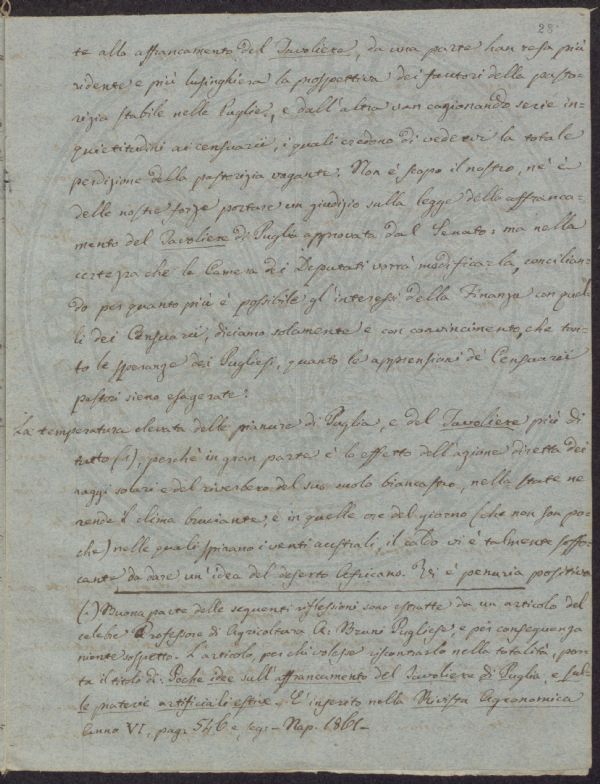 28.
te allo affrancamento del Tavoliere, da una parte han resa più
ridente e più lusinghiera la prospettiva dei fautori della pasto=
rizia stabile nelle Puglie, e dall'altra van cagionando serie in=
quietitudini ai censuarii, i quali credono di vedervi la totale
perdizione della pastorizia vagante. Non è scopo il nostro, nè è
delle nostre forze portare un giudizio sulla legge dello affranca=
mento del Tavoliere di Puglia approvata dal Senato: ma nella
certezza che la Camera dei Deputati vorrà modificarla, concilian=
do per quanto più è possibile gl'interessi della Finanza con quel=
li dei Censuarii, diciamo solamente e con convincimento, che tan=
to le speranze dei Pugliesi, quanto le apprensioni de' Censuarii
pastori sieno esagerate.
La temperatura elevata delle pianure di Puglia, e del Tavoliere più di
tutto (1), perchè in gran parte è lo effetto dell'azione diretta dei
raggi solari e del riverbero del suo suolo biancastro, nella state ne
rende il clima bruciante, e in quelle ore del giorno (che non son po=
che) nelle quali spirano i venti australi, il caldo vi è talmente soffo=
cante da dare un'idea del deserto Africano. Vi è penuria positiva
(1) Buona parte delle seguenti riflessioni sono estratte da un articolo del
celebre Professore di Agricoltura A: Bruni Pugliese, e per conseguenza
niente sospetto. L'articolo, per chi volesse riscontrarlo nella totalità, por=
ta il titolo di: Poche idee sull'affrancamento del Tavoliere di Puglia, e sul=
le praterie artificiali estive. È inserito nella Rivista Agronomica
Anno VI, pag: 546 e seg: - Nap. 1861-